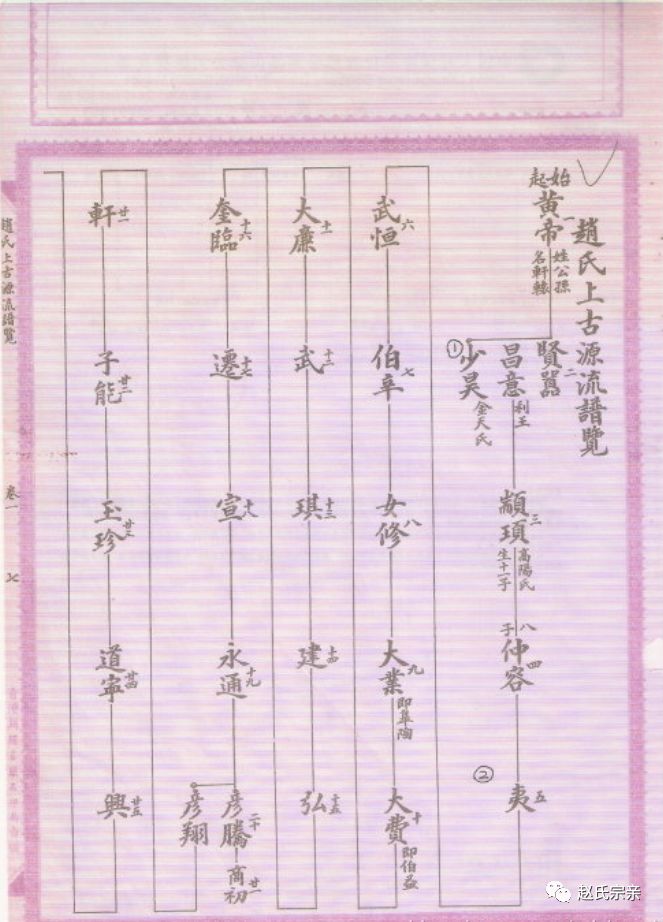 趙氏上古源流譜覽
始起
黃帝 一
姓公孫
名軒轅
賢囂 二
昌意
利王
①少昊
金天氏
顓頊 三
高陽氏
生十一子
八子
仲容 四
②
夷 五
武恒 六
伯辛 七
女修 八
大業 九
即臯陶
大費 十
即伯益
大廉 十一
武 十二
琪 十三
建 十四
弘 十五
奎臨 十六
遷 十七
宣 十八
永通 十九
彦騰 二十
商初 廿一
彦翔
軒 廿一
子能 廿二
玉珍 廿三
道寧 廿四
興 廿五
趙氏上古源流譜覽
卷一
七
赵氏宗亲